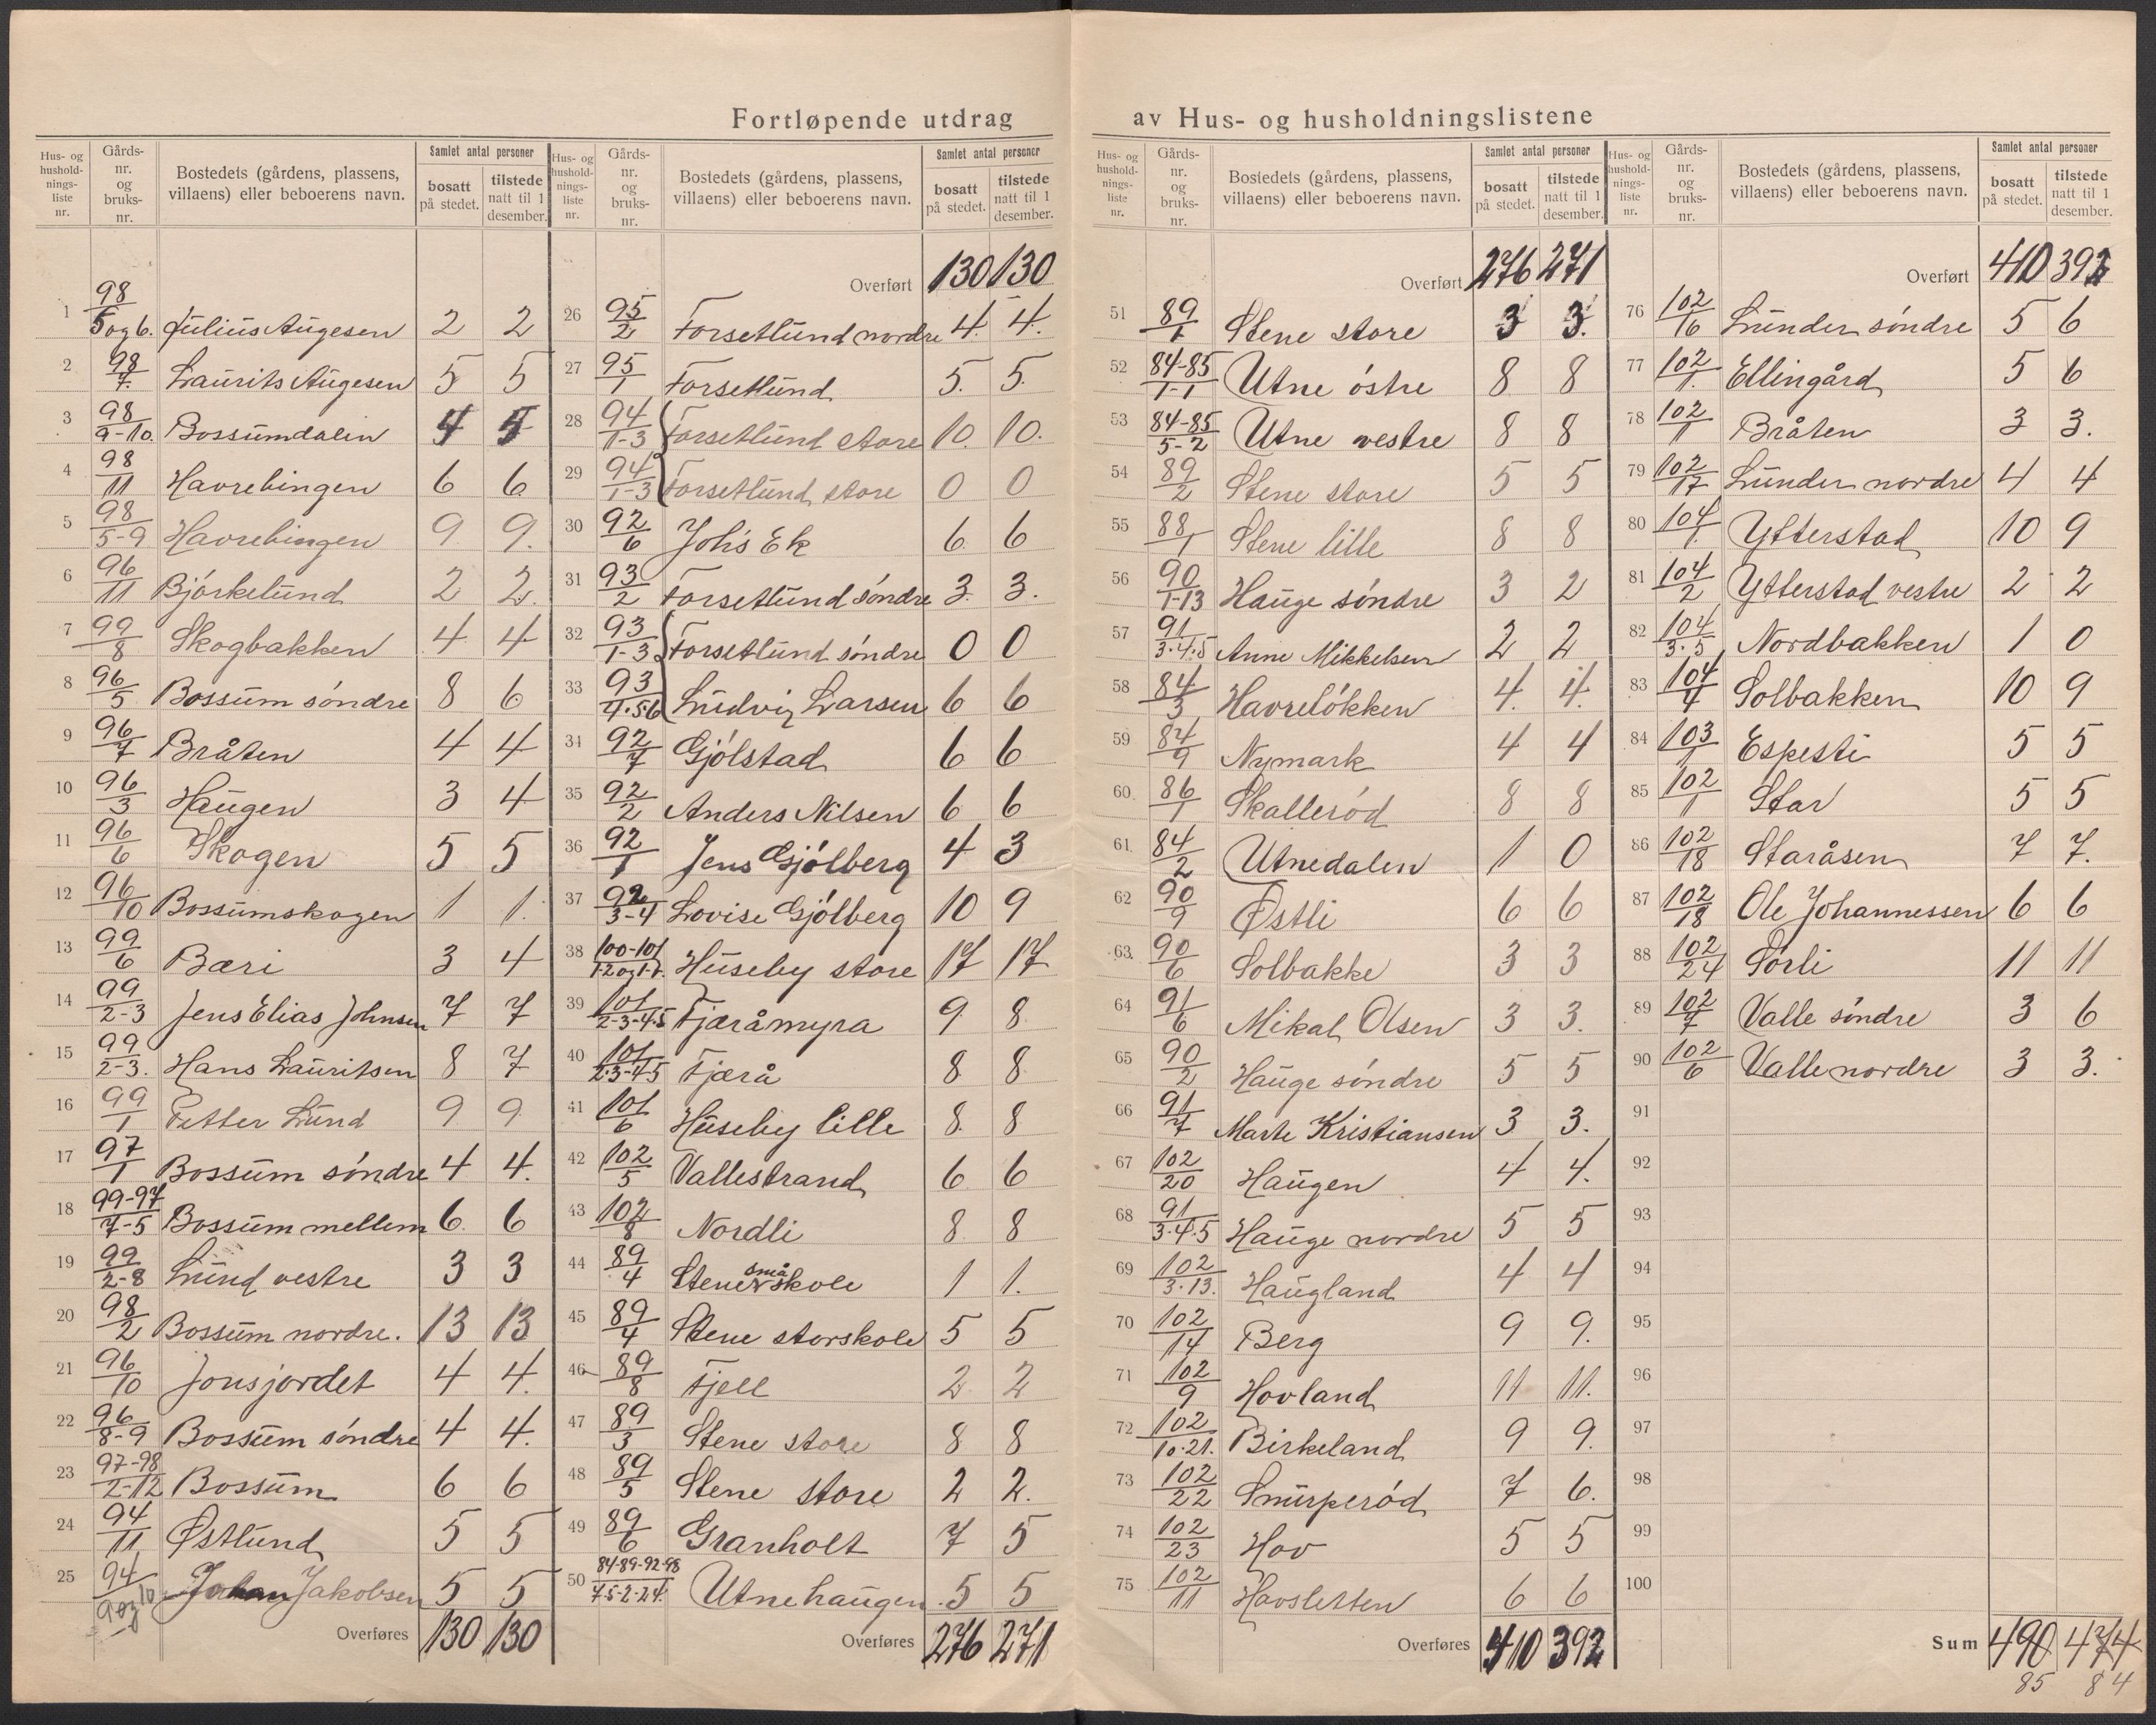 Fortløpende utdrag av Hus- og husholdningslistene
Hus- og husholdnings-liste nr. | Gårds-nr. og bruks-nr. | Bostedets (gårdens, plassens, villaens) eller beboerens navn. | Samlet antal personer | bosatt på stedet. | tilstede natt til 1 desember.
1 98/5 og 6. Julius Augesen 2 2
2 98/7. Laurits Augesen 5 5
3 98/9-10. Bossumdalen
4 98/11 Havrebingen 6 6
5 98/5-9 Havrebingen 9 9.
6 96/11 Bjørkelund 2 2.
7 99/8 Skogbakken 4 4
8 96/5 Bossum søndre 8 6
9 96/7 Bråten 4 4
10 96/3 Haugen 3 4
11 96/6 Skogen 5 5
12 96/10 Bossumskogen 1 1.
13 99/6 Bæri 3 4
14 99/2-3 Jens Elias Johnsen 7 7
15 99/2-3. Hans Lauritsen 8 7
16 99/1 Petter Lund 9 9
17 97/1 Bossum søndre 4 4.
18 99-97/7-5 Bossum mellem 6 6
19 99/2-8 Lund vestre 3 3
20 98/2 Bossum nordre. 13 13
21 96/10 Jonsjordet 4 4.
22 96/8-9 Bossum søndre 4 4.
23 97-98/2-12 Bossum 6 6
24 94/11 Østlund 5 5
25 94/9 og 10 Johan Jakobsen 5 5
Overføres 130 130
Hus- og husholdnings-liste nr. | Gårds-nr. og bruks-nr. | Bostedets (gårdens, plassens, villaens) eller beboerens navn. | Samlet antal personer | bosatt på stedet. | tilstede natt til 1 desember.
Overført 130 130
26 95/2 Forsetlund nordre 4. 4.
27 95/1 Forsetlund 5. 5.
28 94/1-3 Forsetlund store 10. 10.
29 94/1-3 Forsetlund store 0 0
30 92/6 Johs Ek 6. 6
31 93/2 Forsetlund søndre 3. 3.
32 93/1-3 Forsetlund søndre 0 0
33 93/4.5.6 Ludvig Larsen 6 6
34 92/7 Gjølstad 6 6
35 92/2 Anders Nilsen 6 6
36 92/1 Jens Gjølberg 4 3
37 92/3-4 Lovise Gjølberg 10 9
38 100-101 Huseby store 17 17
39 101/2-3-4.5 Fjæråmyra 9 8
40 101/2.3-4.5 Fjærå 8 8
41 101/6 Huseby lille 8. 8
42 102/5 Vallestrand 6 6
43 102/8 Nordli 8 8
44 89/4 Stene småskole 1 1.
45 89/4 Stene storskole 5 5
46 89/8 Fjell 2 2
47 89/3 Stene store 8 8
48 89/5 Stene store 2 2.
49 89/6 Granholt 7 5
50 84-89-92-98/7-5-2-24. Utnehaugen 5 5
Overføres 276 271
Hus- og husholdnings-liste nr. | Gårds-nr. og bruks-nr. | Bostedets (gårdens, plassens, villaens) eller beboerens navn. | Samlet antal personer | bosatt på stedet. | tilstede natt til 1 desember.
Overført 276 271
51 89/1 Stene store 3 3.
52 84-85/1-1 Utne østre 8 8
53 84-85/5-2 Utne vestre 8 8
54 89/2 Stene store 5 5
55 88/1 Stene lille 8 8
56 90/1-13 Hauge søndre 3 2
57 91/3.4.5 Anne Mikkelsen 2 2
58 84/3 Havreløkken 4. 4.
59 84/9 Nymark 4 4
60 86/1 Skallerød 8 8
61 84/2 Utnedalen 1 0
62 90/9 Østli 6 6
63 90/6 Solbakke 3 3
64 91/6 Mikal Olsen 3 3.
65 90/2 Hauge søndre 5 5
66 91/7 Marte Kristiansen 3 3.
67 102/20 Haugen 4 4.
68 91/3.4.5 Hauge nordre 5 5
69 102/3.13. Haugland 4 4
70 102/14 Berg 9 9.
71 102/9 Hovland 11 11.
72 102/10.21. Birkeland 9 9.
73 102/22 Snurperød 7 6.
74 102/23 Hov 5 5
75 102/11 Havsletten 6 6
Overføres 410 392
Hus- og husholdnings-liste nr. | Gårds-nr. og bruks-nr. | Bostedets (gårdens, plassens, villaens) eller beboerens navn. | Samlet antal personer | bosatt på stedet. | tilstede natt til 1 desember.
Overført 410 392
76 102/16 Lunder søndre 5 6
77 102/1. Ellingård 5 6
78 102/1 Bråten 3 3.
79 102/17 Lunder nordre 4 4
80 104/1. Ytterstad 10 9
81 104/2 Ytterstad vestre 2 2
82 104/3.5 Nordbakken 1 0
83 104/4 Solbakken 10 9
84 103/1 Espesti 5 5
85 102/1 Star 5 5
86 102/18 Staråsen 7 7.
87 102/18 Ole Johannessen 6 6
88 102/24 Sørli 11 11
89 102/7 Valle søndre 3 6
90 102/6 Valle nordre 3 3.
91
92
93
94
95
96
97
98
99
100
Sum 490 474
85 84